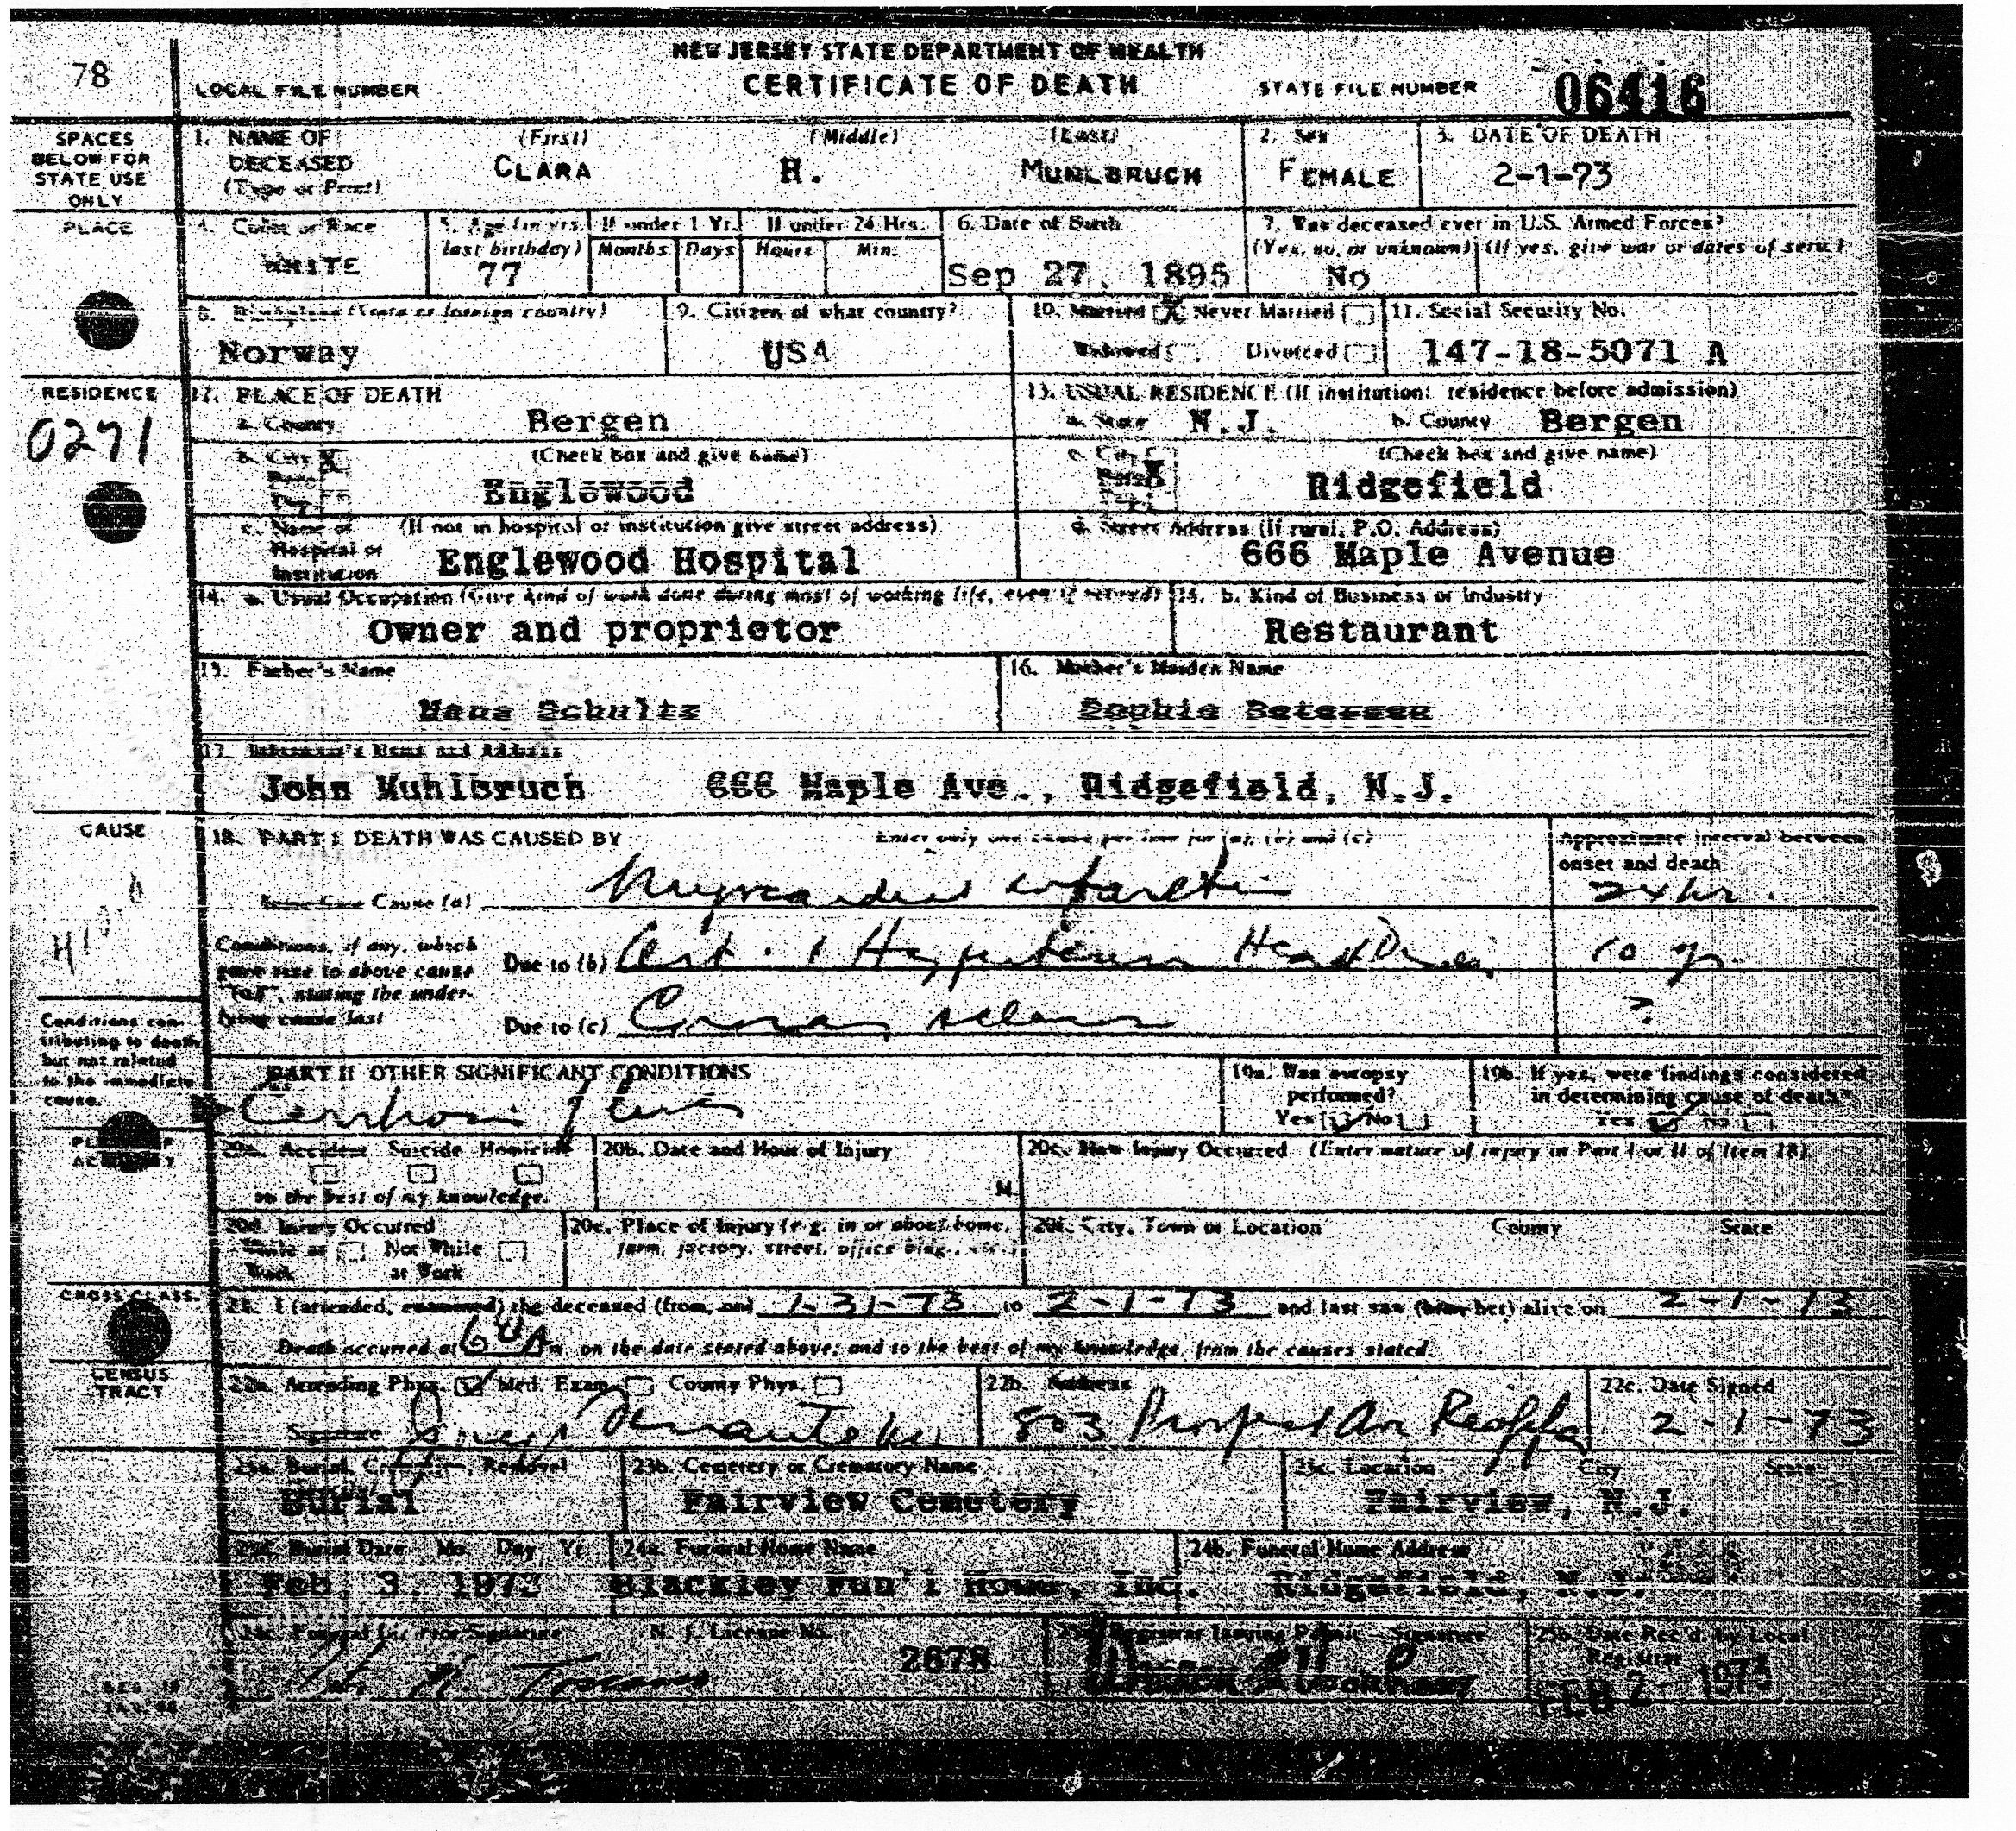 NEW JERSEY STATE DEPARTMENT OF HEALTH
78
LOCAL FILE NUMBER
CERTIFICATE OF DEATH
STATE FILE NUMBER 06416
SPACES BELOW FOR STATE USE ONLY
1. NAME OF DECEASED (Type or Print)
(First) (Middle) (Last)
CLARA H. MUHLBRUCH
2. Sex
FEMALE
3. DATE OF DEATH
2-1-73
PLACE
4. Color or Race
WHITE
5. Age (in yrs. last birthday)
77
If under 1 Yr.
Months Days
If under 24 Hrs.
Hours Min.
6. Date of Birth
Sep 27, 1895
7. Was deceased ever in U.S. Armed Forces?
(Yes, no, or unknown) (If yes, give war or dates of serv.)
No
8. Birthplace (State or foreign country)
Norway
9. Citizen of what country?
USA
10. Married X Never Married
Widowed Divorced
11. Social Security No.
147-18-5071 A
RESIDENCE
0271
12. PLACE OF DEATH
a. County Bergen
b. City X (Check box and give name)
Boro
Twp
Englewood
c. Name of Hospital or Institution
(If not in hospital or institution give street address)
Englewood Hospital
13. USUAL RESIDENCE (If institution: residence before admission)
a. State N.J. b. County Bergen
c. City (Check box and give name)
Boro X
Ridgefield
d. Street Address (If rural, P.O. Address)
666 Maple Avenue
14. a. Usual Occupation (Give kind of work done during most of working life, even if retired)
Owner and proprietor
14. b. Kind of Business or Industry
Restaurant
15. Father's Name
Hans Schultz
16. Mother's Maiden Name
Sophie Petersen
17. Informant's Name and Address
John Muhlbruch 666 Maple Ave., Ridgefield, N.J.
CAUSE
18. PART I DEATH WAS CAUSED BY
Enter only one cause per line for (a), (b) and (c)
Approximate interval between onset and death
Immediate Cause (a) Myocardial infarction 24 hr.
Conditions, if any, which gave rise to above cause "(a)", stating the underlying cause last
Due to (b) Art. & Hypertensive Heart Disease 10 yr.
Due to (c) Coronary sclerosis ?
Conditions contributing to death but not related to the immediate cause.
PART II OTHER SIGNIFICANT CONDITIONS
Cirrhosis of liver
19a. Was autopsy performed?
Yes No
19b. If yes, were findings considered in determining cause of death?
Yes No
PLACE OF ACCIDENT
20a. Accident Suicide Homicide
to the best of my knowledge.
20b. Date and Hour of Injury
M.
20c. How Injury Occurred (Enter nature of injury in Part I or II of Item 18)
20d. Injury Occurred
While at Work Not While at Work
20e. Place of Injury (e.g. in or about home, farm, factory, street, office bldg., etc.)
20f. City, Town or Location County State
CROSS CLASS.
21. I (attended, examined) the deceased (from, on) 1-31-73 to 2-1-73 and last saw (him, her) alive on 2-1-73
Death occurred at m on the date stated above; and to the best of my knowledge, from the causes stated.
CENSUS TRACT
22a. Attending Phys. Med. Exam. County Phys.
Signature
22b. Address
803 Prospect Av
22c. Date Signed
2-1-73
23a. Burial, Cremation, Removal
Burial
23b. Cemetery or Crematory Name
Fairview Cemetery
23c. Location City State
Fairview, N.J.
23d. Burial Date Mo. Day Yr
Feb. 3, 1973
24a. Funeral Home Name
Blackley Fun'l Home, Inc.
24b. Funeral Home Address
Ridgefield, N.J.
24c. Funeral Director Signature
N. J. License No.
2678
25a. Registrar Issuing Permit - Signature
25b. Date Rec'd. by Local Registrar
FEB 2 - 1973